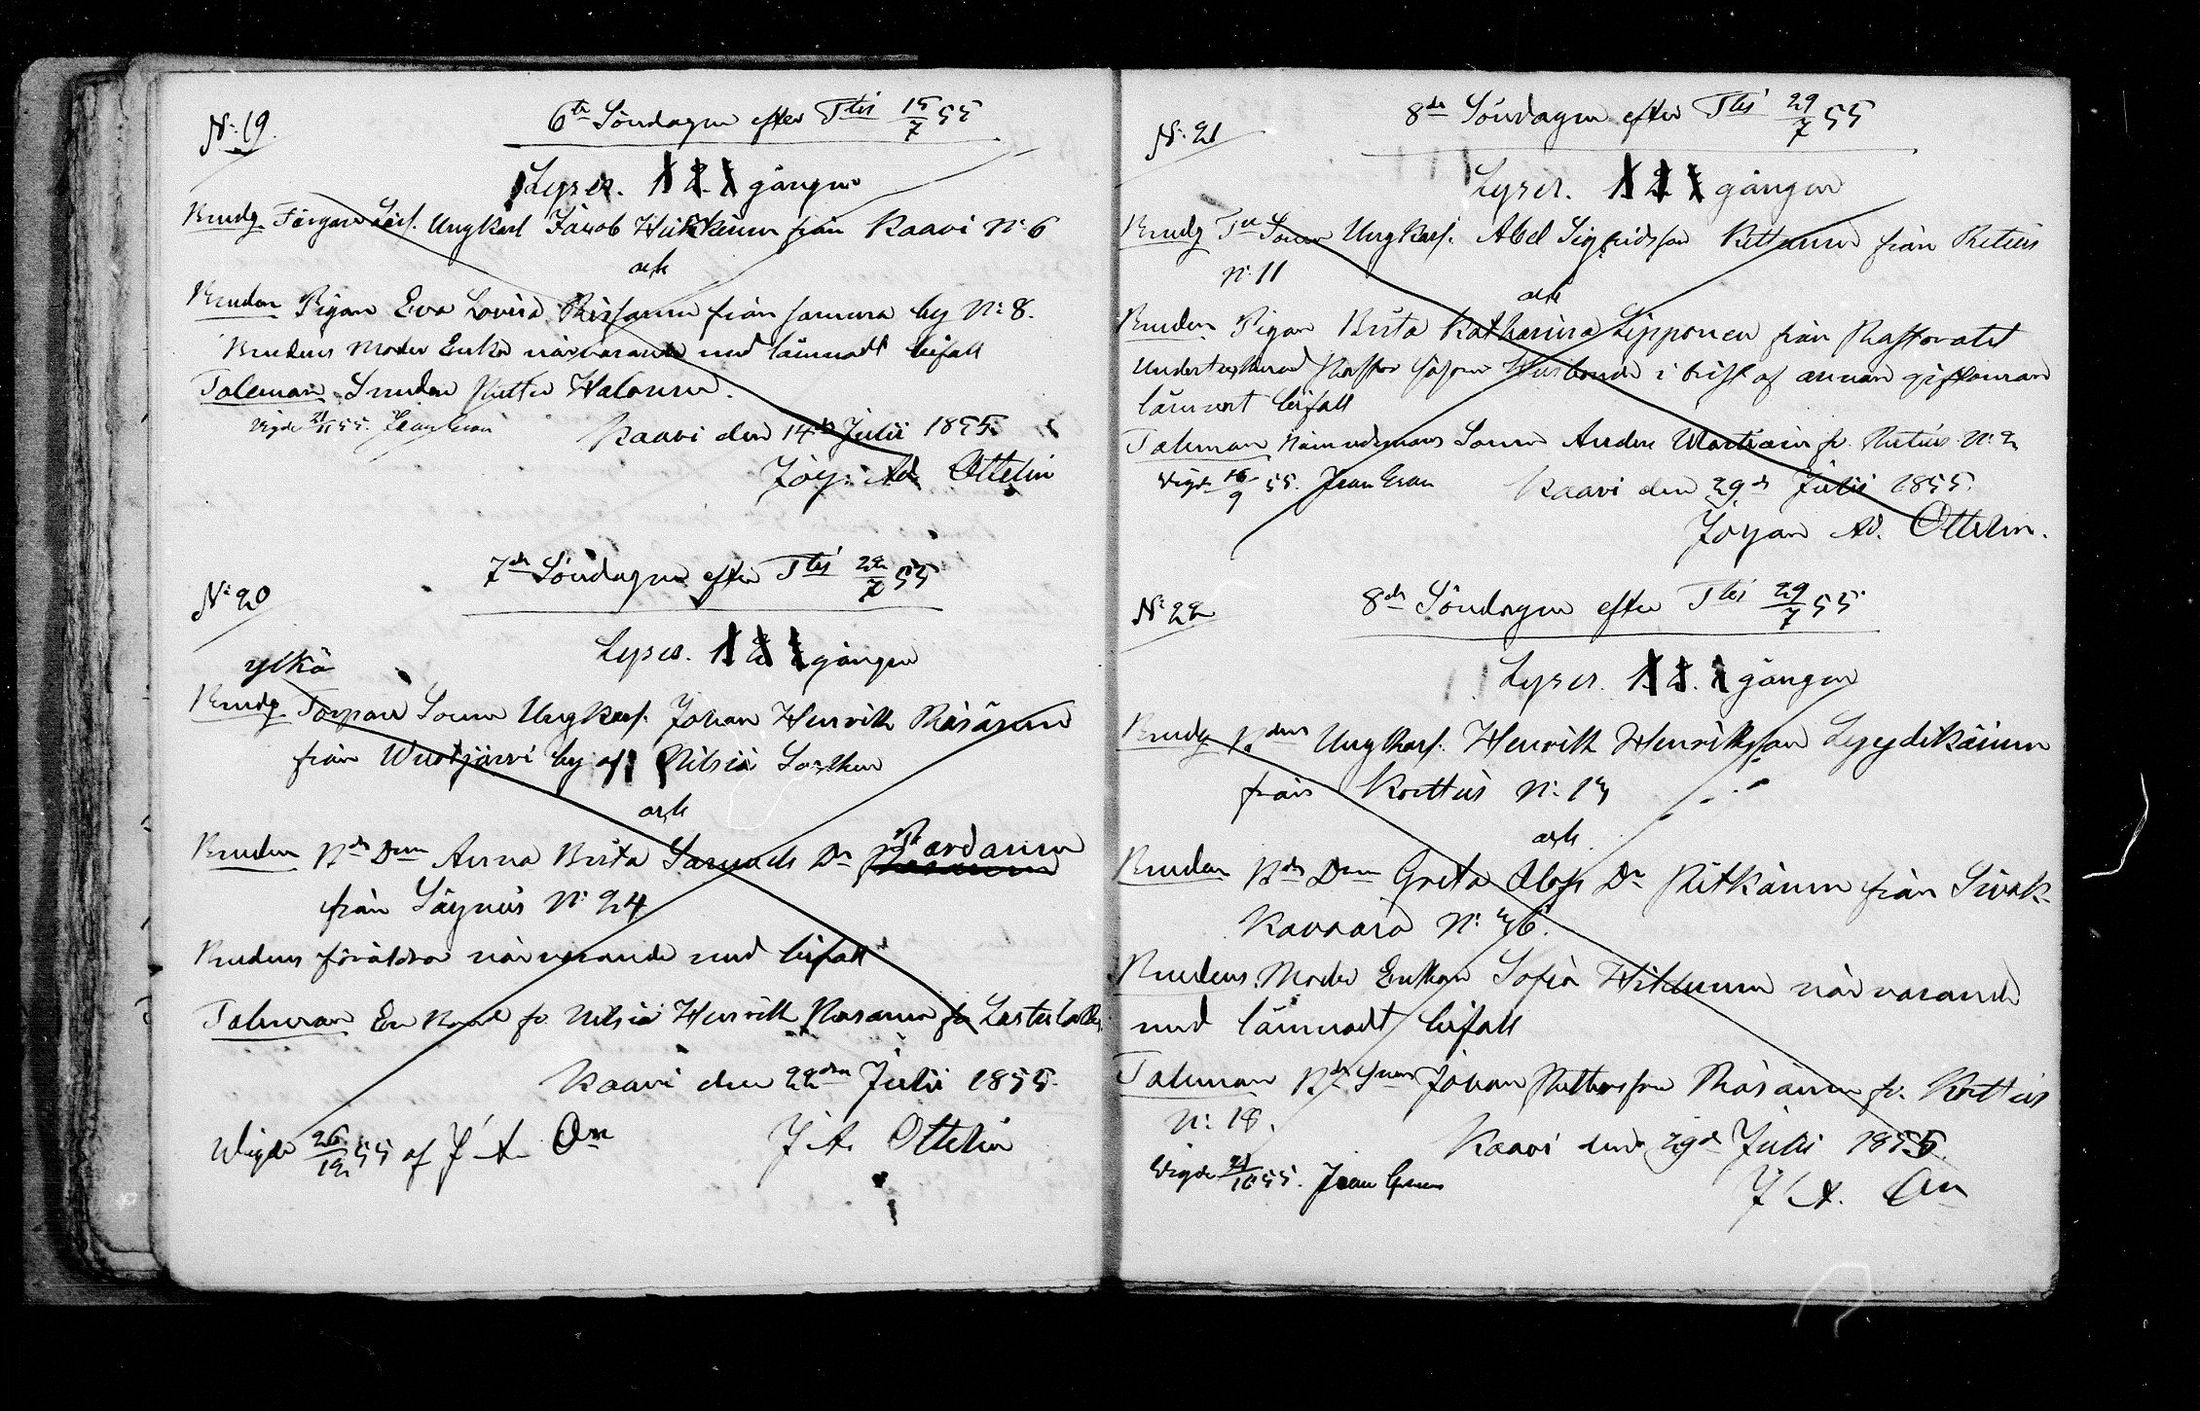 N: 19.
6te Söndagen efter Ttis 15/7 55
Lyses. 1 2. 3 gången
Brudg. Färgare Lärl. Ungkarl Jacob Hirkänen från Kaavi N: 6
och
Bruden Pigan Eva Lovisa Räsänen från samma by N: 8.
Brudens Moder Enka närvarande med lämnadt bifall
Taleman Petter Halonen.
Wigde 55.
Kaavi den 14de Julii 1855.
Ad Ottelin
N: 20
7de Söndagen efter Ttis 22/7 55
Lyses. 1 2 3 gången
ylkä
Brudg. Torpare Sonen Ungkarl. Johan Henrik Räsänen
från Wuotjärvi by af Nilsiä Socken
och
Bruden Bds Dren Anna Brita Samuels Dr Pardanen
från Säyneis N: 24
Brudens föräldrar närvarande med bifall
Taleman fr. Nilsiä Henrik Rasanen fr
Kaavi den 22den Julii 1855.
Wigde 26/12 55 af J A On
J A. Ottelin
N: 21
8de Söndagen efter Ttis 29/7 55
Lyses. 1 2 3 gången
Brudg Sonen Ungkarl. Abel Sigfridsson från
N: 11
och
Bruden Pigan Brita Katharina Lipponen från
Undertecknad såsom Husbonde i brist af annan giftoman
lämnat bifall
Taleman Nämndemans Sonen Anders fr. N: 2
Wigde 16/9 55.
Kaavi den 29de Julii 1855.
Ad. Ottelin.
N: 22
8de Söndagen efter Ttis 29/7 55
Lyses. 1. 2. 3 gången
Brudg Bden Ungkarl. Henrik Henriksson Lyydikäinen
från Kortteis N: 13
och
Bruden Bds Dren Greta Olofs Dr Pitkänen från Sivak-
kavaara N: 36.
Brudens Moder Enkan Sofia närvarande
med lämnadt bifall
Taleman Bds Johan Pettersson Räsänen fr. Kortteis
N: 18.
Kaavi den 29de Julii 1855.
Wigde 21/10 55.
J A. On